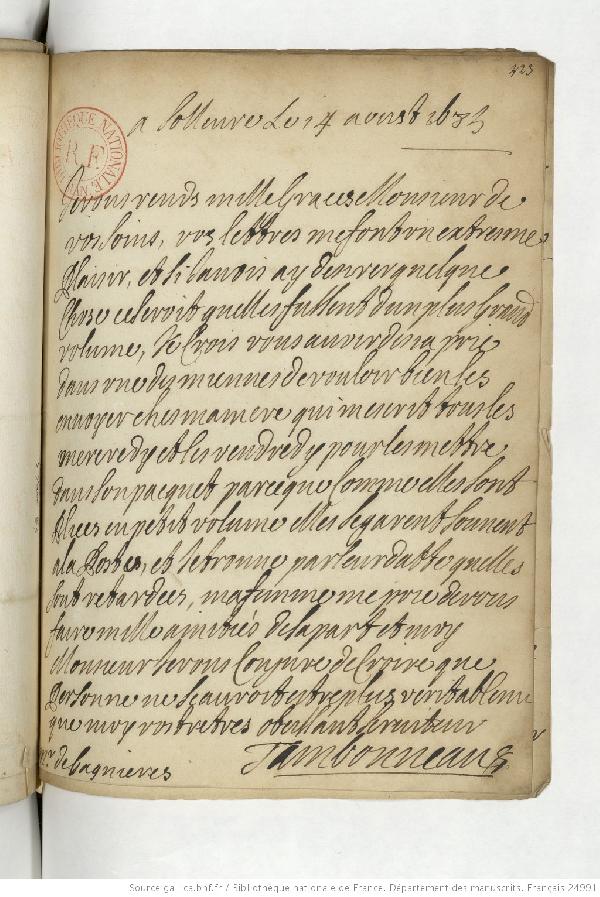 423
a Solleure Le 14 aoust 1685
BIBLIOTHEQUE NATIONALE MSS
R.F.
Je vous rends mille Graces Monsieur de
vos soins, vos lettres me font vn extresme
plaisir, et si j'auois a y desirer quelque
Chose ce seroit quelles fussent dun plus Grand
volume, Je Crois vous auoir desja prié
dans vne des miennes de vouloir bien les
enuoyer ches ma mere qui mescrit tous les
mercredy et les vendredy pour les mettre
dans son pacquet parceque Comme elles sont
pliées en petit volume elles segarent souuent
a la Poste, et Je trouue par leur datte quelles
sont retardées, ma femme me prie de vous
faire mille amitiés de sa part et moy
Monsieur Je vous Conjure de Croire que
Personne ne scauroit estre plus veritableme
que moy vostre tres obeissant seruiteur
Tambonneau
Mr. de Gagnieres
Source gallica.bnf.fr / Bibliothèque nationale de France. Département des manuscrits. Français 24991